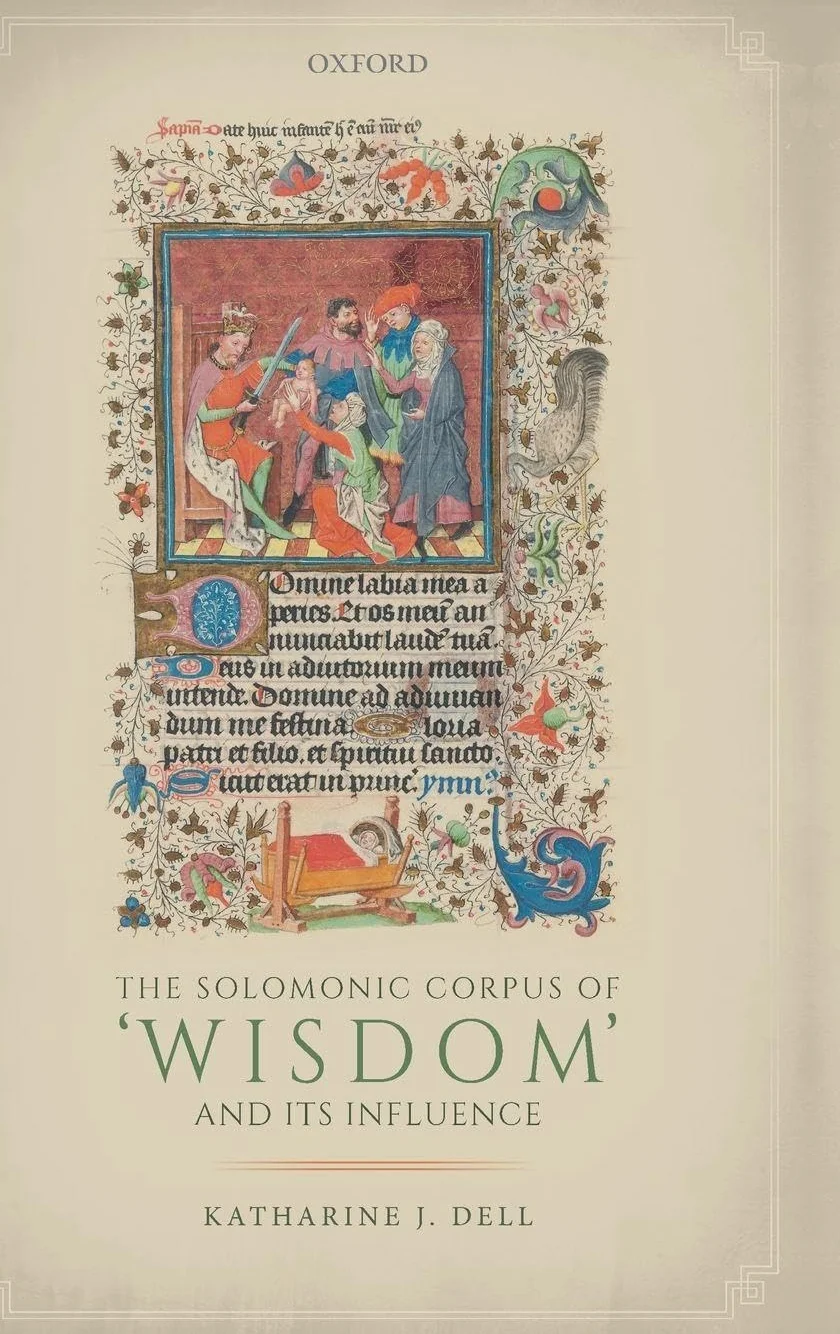 OXFORD
Sapia Date huic infantē h ē eni mr ei9
Domine labia mea a
peries. Et os meū an
nunciabit laudē tuā.
Deus in adiutorium meum
intende. Domine ad adiuuan
dum me festina Gloria
patri et filio. et spiritui sancto.
Sicut erat in princ. ymn9
THE SOLOMONIC CORPUS OF
‘WISDOM’
AND ITS INFLUENCE
KATHARINE J. DELL